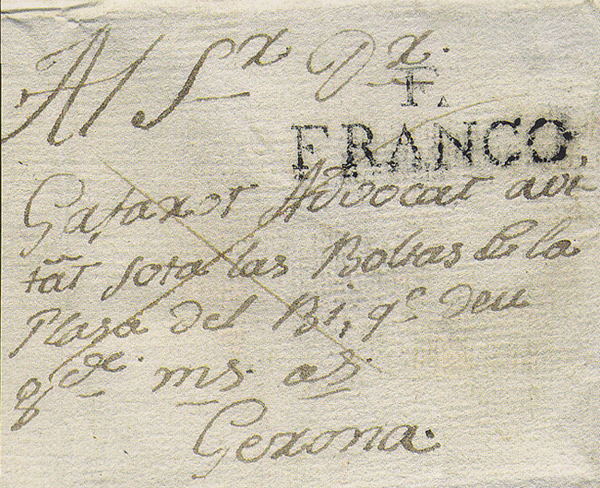 Al Sr Dr.
F.
FRANCO,
Gafaror Advocat avi
tãt sota las Boltas de la
Plasa del Bi, qe. Deu
gde. ms. as.
Gerona.